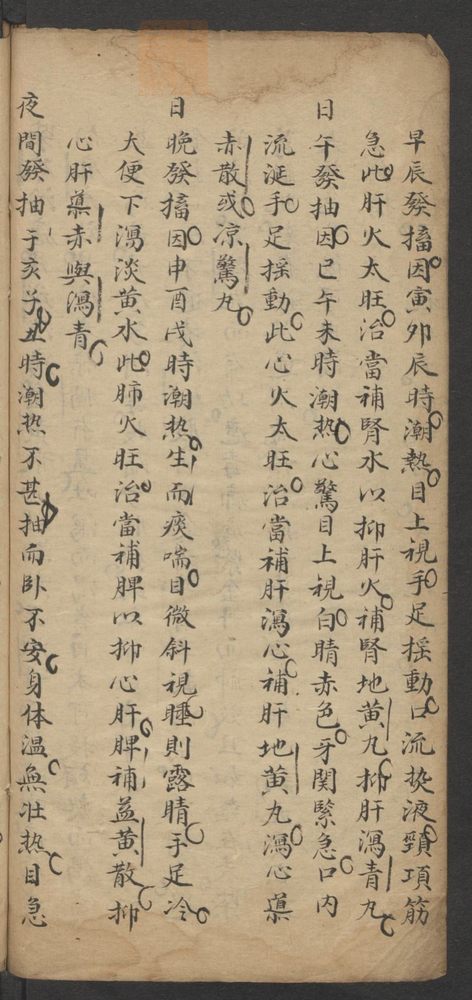 早辰發搐因寅卯辰時潮熱目上視手足揺動口流挾液頸項筋
急此肝火太旺治當補腎水以抑肝火補腎地黄九抑肝瀉青九
日午發抽因巳午未時潮热心驚目上視白睛赤色牙関緊急口内
流涎手足揺動此心火太旺治當補肝瀉心補肝地黄九瀉心䕫
赤散或凉驚九
日晚發搐因申酉戌時潮热生而痰喘目微斜視睡則露睛手足冷
大便下瀉淡黄水此肺火旺治當補脾以抑心肝脾補益黄散抑
心肝䕫赤與瀉青
夜間發抽于亥子丑時潮热不甚抽而卧不安身体温無壮热目急